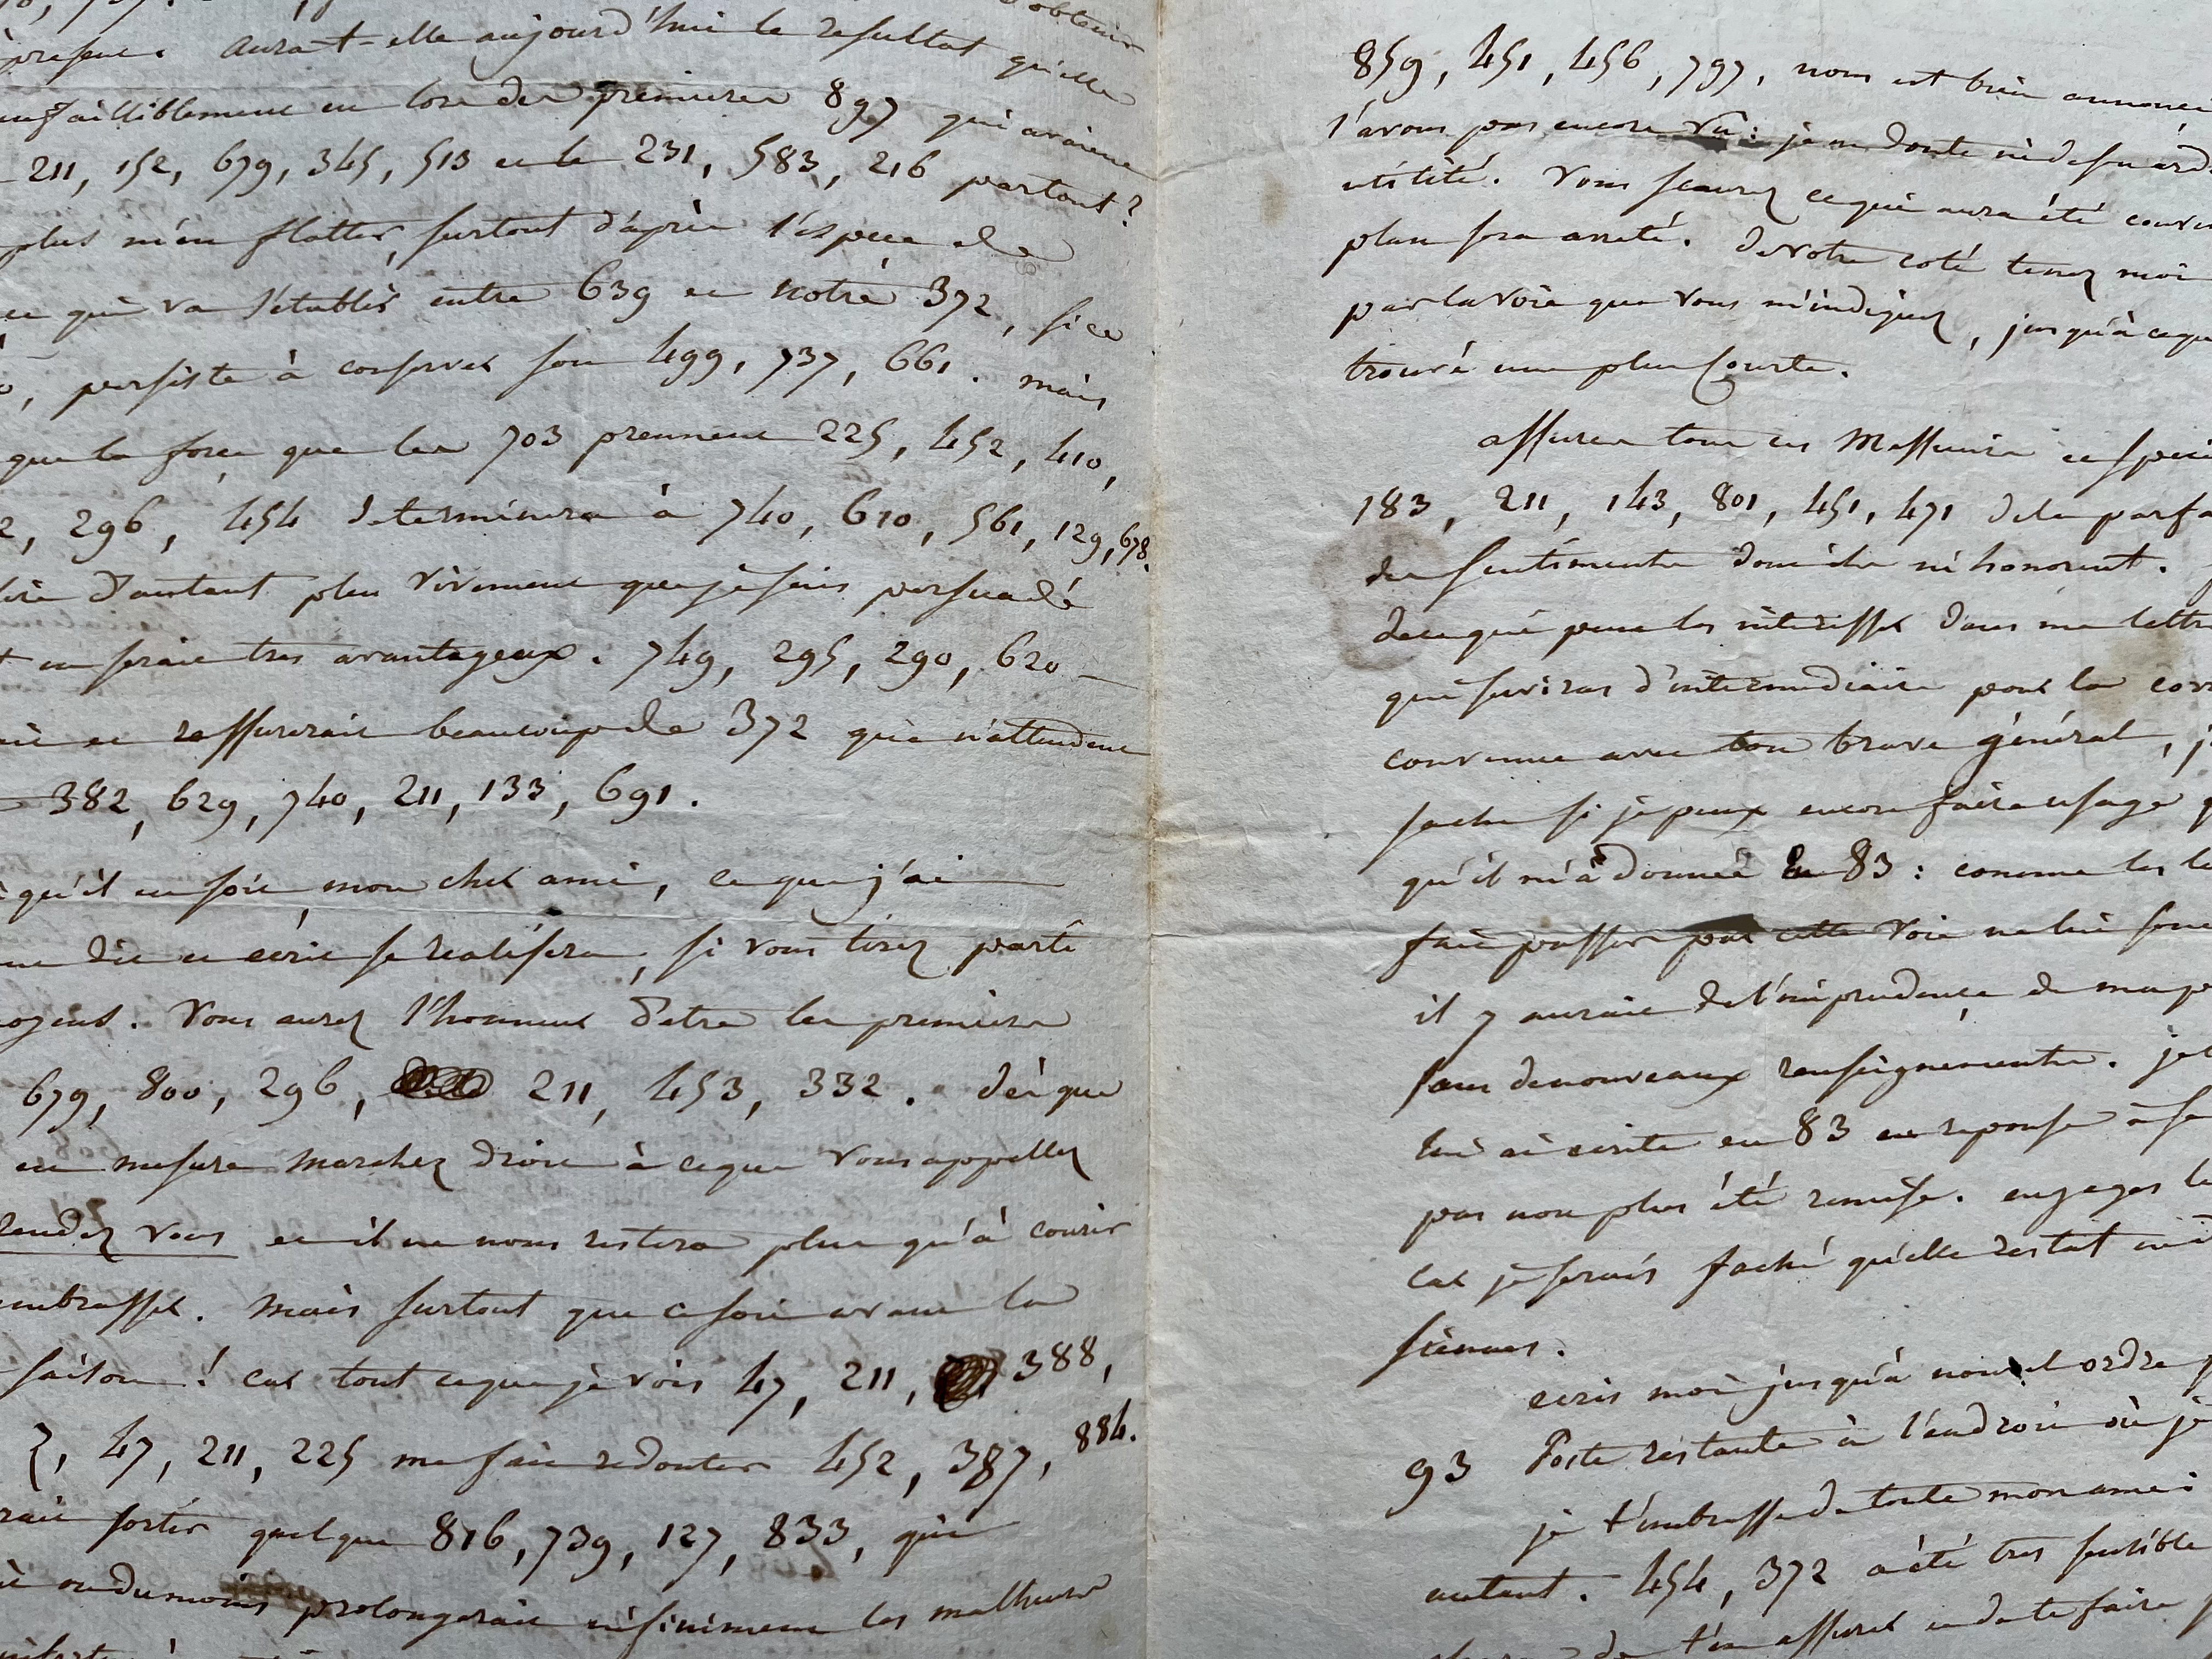 obtenir
présent. Aura-t-elle aujourd'hui le résultat qu'elle
infailliblement eu lors des premiers 897 qui avaient
211, 152, 679, 345, 513 et le 231, 583, 216 partout?
plus m'en flatter, surtout d'après l'espece de
ce qui va s'établir entre 639 et notre 372, si ce
, persiste à conserver son 499, 737, 661. mais
que la force que les 703 prennent 225, 452, 410,
2, 296, 454 determinera à 740, 610, 561, 129, 678.
d'autant plus vivement que je suis persuadé
en serait tres avantageux. 749, 295, 290, 620
et rassurerait beaucoup de 372 qui n'attendent
382, 629, 740, 211, 133, 691.
qu'il en soit mon cher ami, ce que j'ai
dit et écrit se realisera, si vous tirez parti
Vous aurez l'honneur d'etre les premiers
679, 800, 296, 211, 453, 332. dès que
en mesure marchez droit à ce que vous appellez
rendez vous et il ne nous restera plus qu'à courir
embrasser. mais surtout que ce soit avant la
saison! car tout ce que je vois 47, 211, 388,
2, 47, 211, 225 me fait redouter 452, 387, 884.
sortir quelque 816, 739, 127, 833, qui
ou du moins prolongerait infiniment les malheurs
859, 451, 456, 797, nous est bien annoncé
l'avons pas encore vu: je ne doute ni de son ard
utilité. Vous scaurez ce qui aura été conve
plan sera arreté. de votre coté tenez moi
par la voie que vous m'indiquez, jusqu'à ce que
trouvé une plus courte.
assurez tous ces Messieurs et speci
183, 211, 143, 801, 451, 471 de la parfa
des sentiments dont ils m'honorent.
de ce qui peut les intéresser dans ma lettre
qui servira d'intermédiaire pour la corr
convenue avec ton brave général, j
sache si je peux encore faire usage
qu'il m'a donnée en 83: comme les le
fait passer par cette voie ne lui sont
il y aurait de l'imprudence de ma p
sans de nouveaux renseignements. je
lui ai écrite en 83 en reponse à sa
pas non plus été remise. engages le
car je serais faché qu'elle restat
siennes.
ecris moi jusqu'à nouvel ordre p
93 Poste restante à l'endroit où je
je t'embrasse de toute mon ame
autant. 454, 372 a été tres sensible
de t'en assurer et de te faire